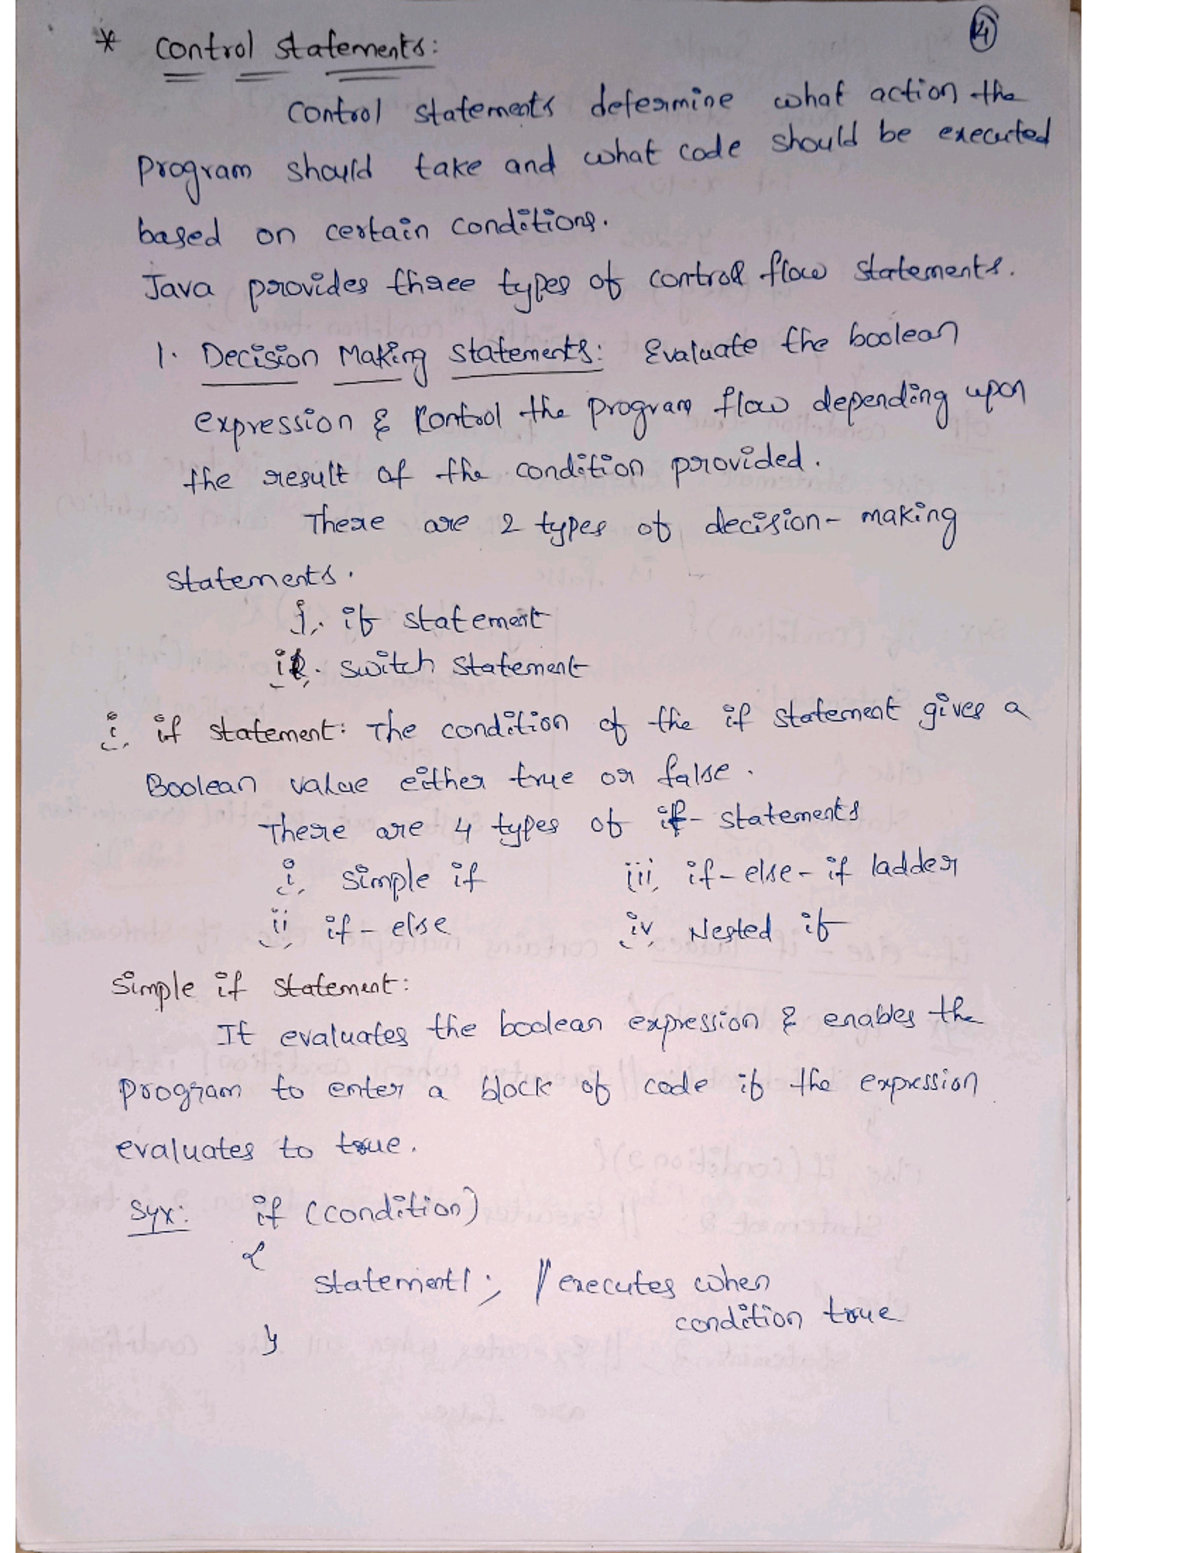 4
* Control statements:
Control statements determine what action the
program should take and what code should be executed
based on certain conditions.
Java provides three types of control flow statements.
1. Decision Making statements: Evaluate the boolean
expression & Control the program flow depending upon
the result of the condition provided.
There are 2 types of decision-making
statements.
i. if statement
ii. switch statement
i. if statement: The condition of the if statement gives a
Boolean value either true or false.
There are 4 types of if-statements
i. simple if iii. if-else-if ladder
ii. if-else iv. Nested if
Simple if statement:
It evaluates the boolean expression & enables the
program to enter a block of code if the expression
evaluates to true.
Syx: if (condition)
{
statement1; // executes when
condition true
}